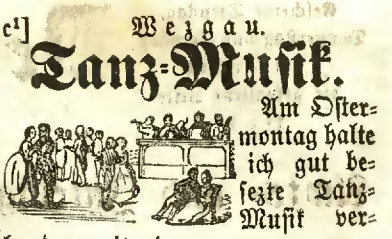 c¹] Wezgau.
Tanz=Musik.
Am Oster=
montag halte
ich gut be=
sezte Tanz=
Musik ver=